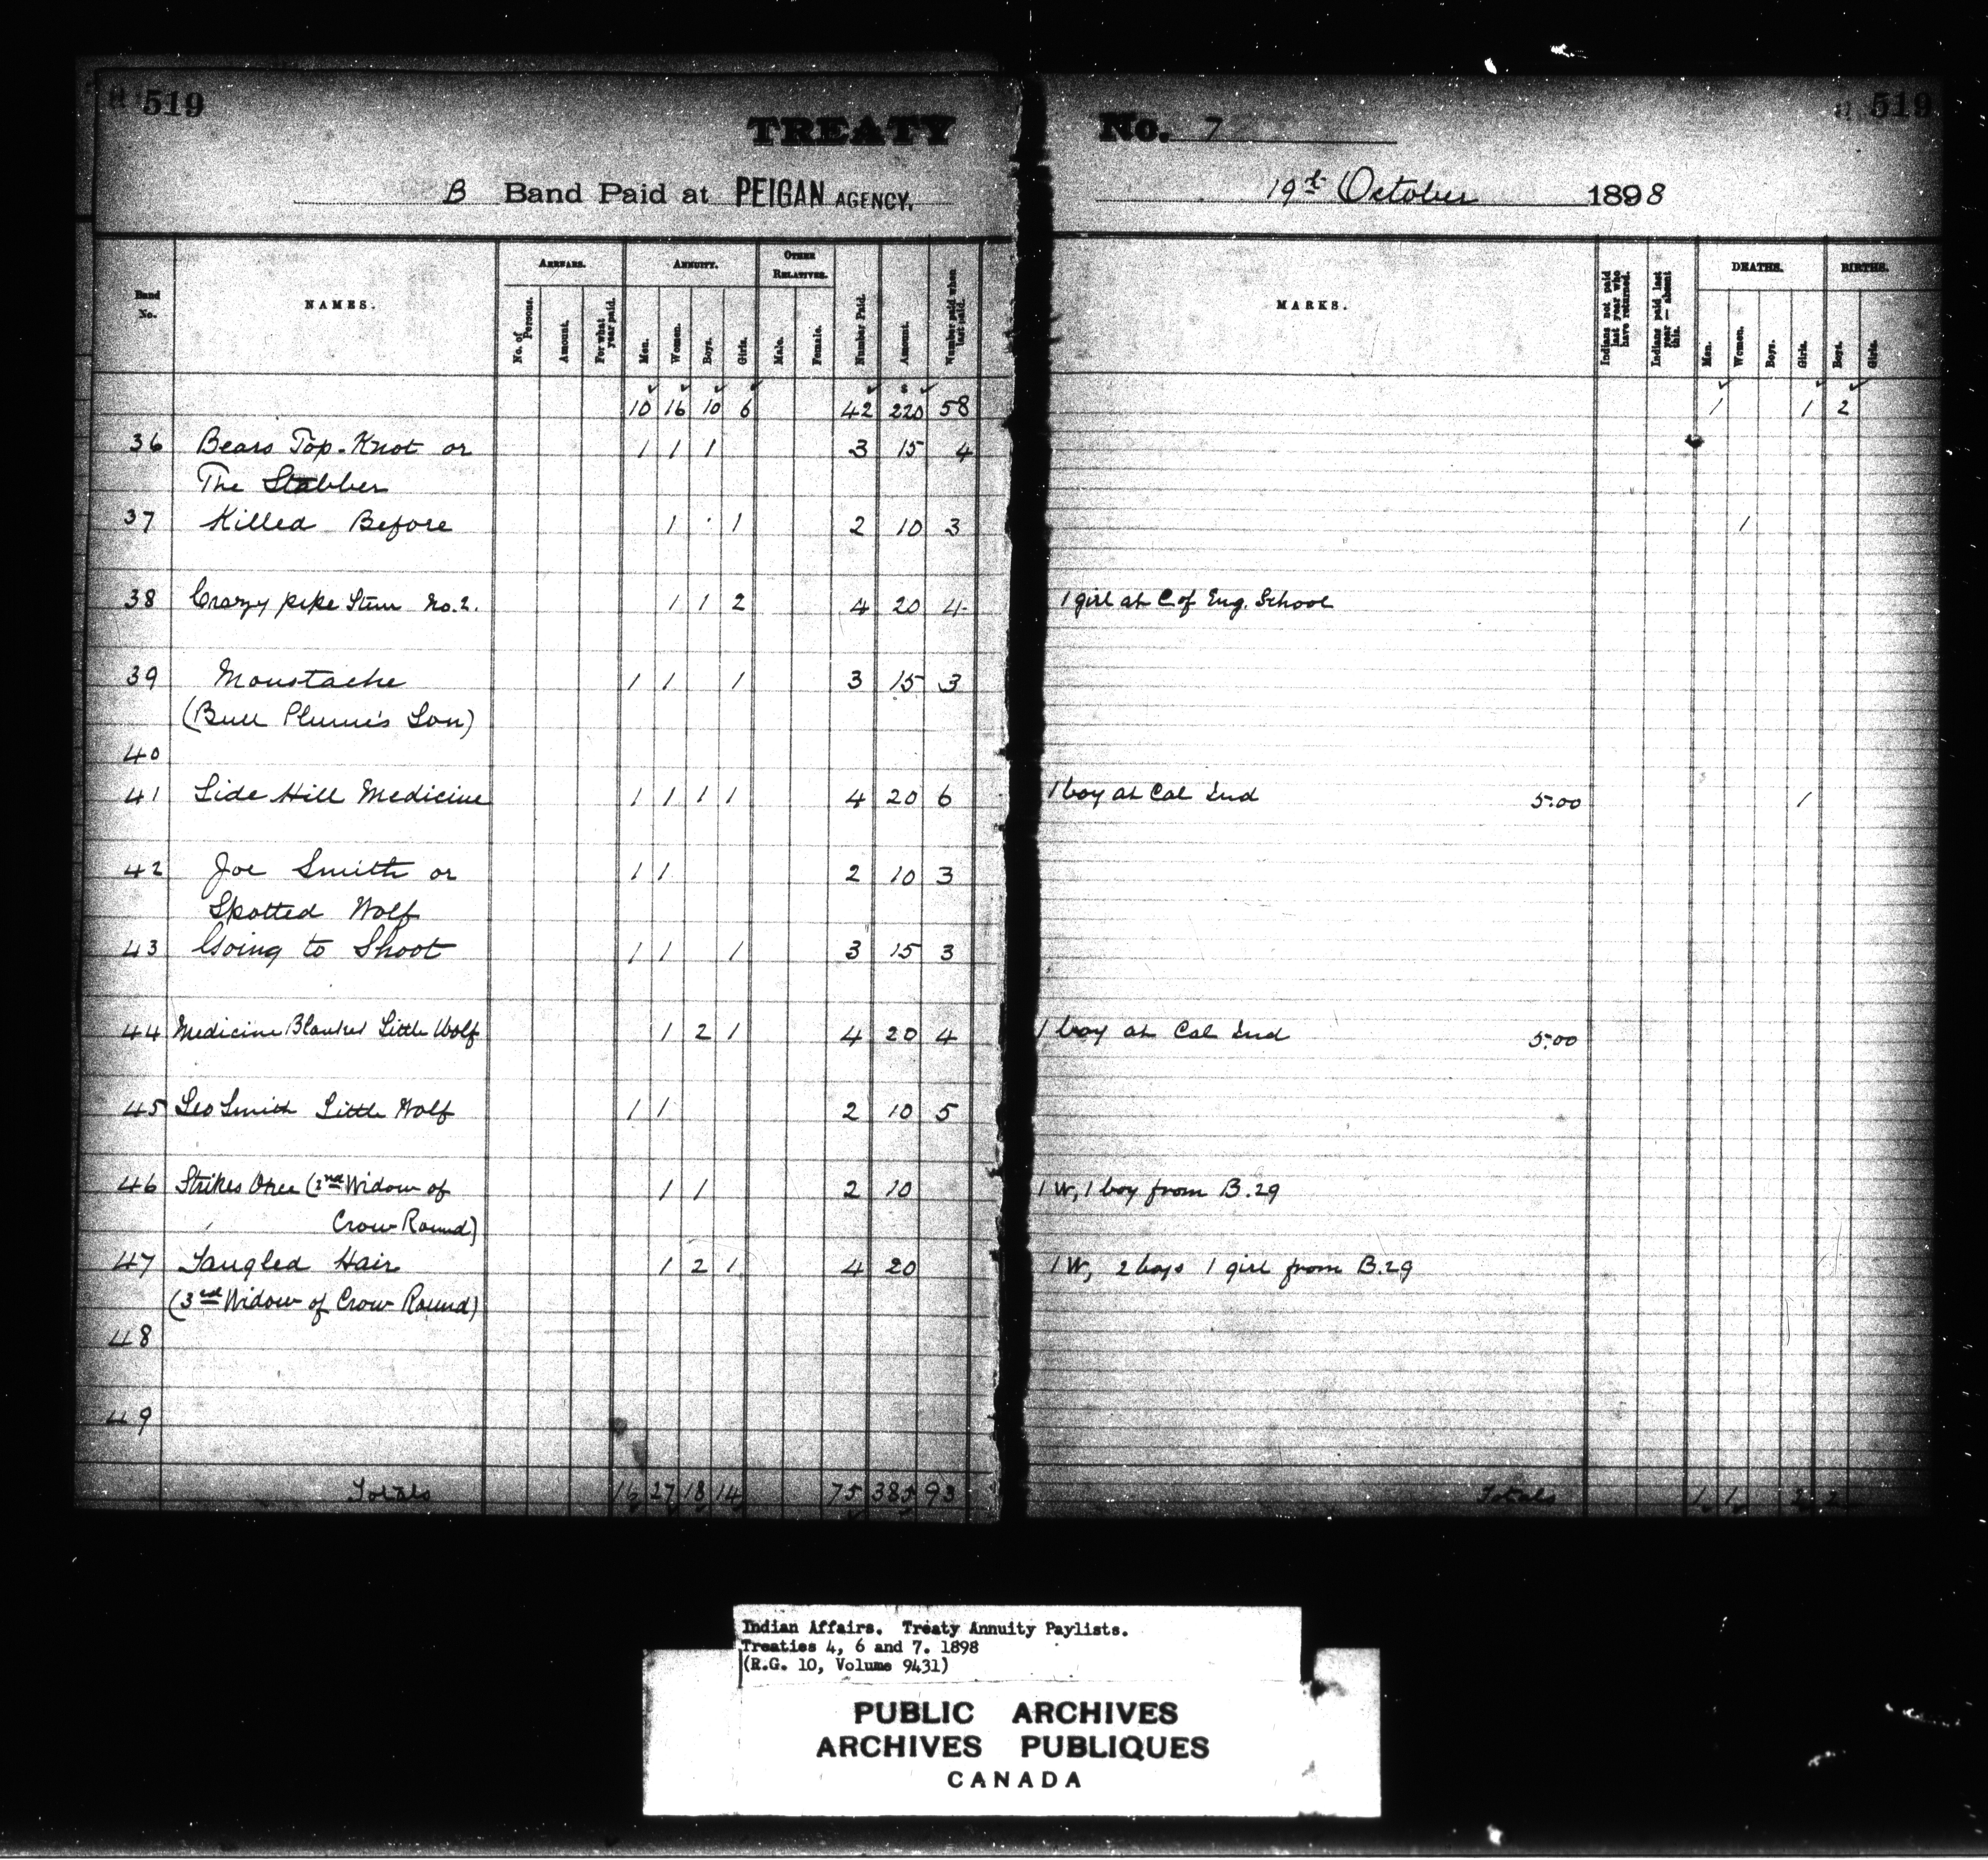 519
TREATY No. 7
519
B Band Paid at PEIGAN AGENCY. 19th October 1898
Band No. NAMES. ARREARS. ANNUITY. OTHER RELATIVES. Number Paid. Amount. Number paid when last paid. MARKS. Indians not paid last year who have returned. Indians paid last year — absent this. DEATHS. BIRTHS.
No. of Persons. Amount. For what year paid. Men. Women. Boys. Girls. Male. Female. Men. Women. Boys. Girls. Boys. Girls.
10 16 10 6 42 $ 220 58 1 1 2
36 Bears Top-Knot or 1 1 1 3 15 4
The Stabber
37 Killed Before 1 1 2 10 3 1
38 Crazy pipe Stem No. 2. 1 1 2 4 20 4 1 girl at C of Eng. School
39 Moustache 1 1 1 3 15 3
(Bull Plume's Son)
40
41 Side Hill Medicine 1 1 1 1 4 20 6 1 boy at Cal Ind 5.00 1
42 Joe Smith or 1 1 2 10 3
Spotted Wolf
43 Going to Shoot 1 1 1 3 15 3
44 Medicine Blanket Little Wolf 1 2 1 4 20 4 1 boy at Cal Ind 5.00
45 Leo Smith Little Wolf 1 1 2 10 5
46 Strikes Once (2nd Widow of 1 1 2 10 1 W, 1 boy from B.29
Crow Round)
47 Tangled Hair 1 2 1 4 20 1 W, 2 boys 1 girl from B.29
(3rd Widow of Crow Round)
48
49
Totals 16 27 18 14 75 385 93 Totals 1 1 2 2
Indian Affairs. Treaty Annuity Paylists.
Treaties 4, 6 and 7. 1898
(R.G. 10, Volume 9431)
PUBLIC ARCHIVES
ARCHIVES PUBLIQUES
CANADA